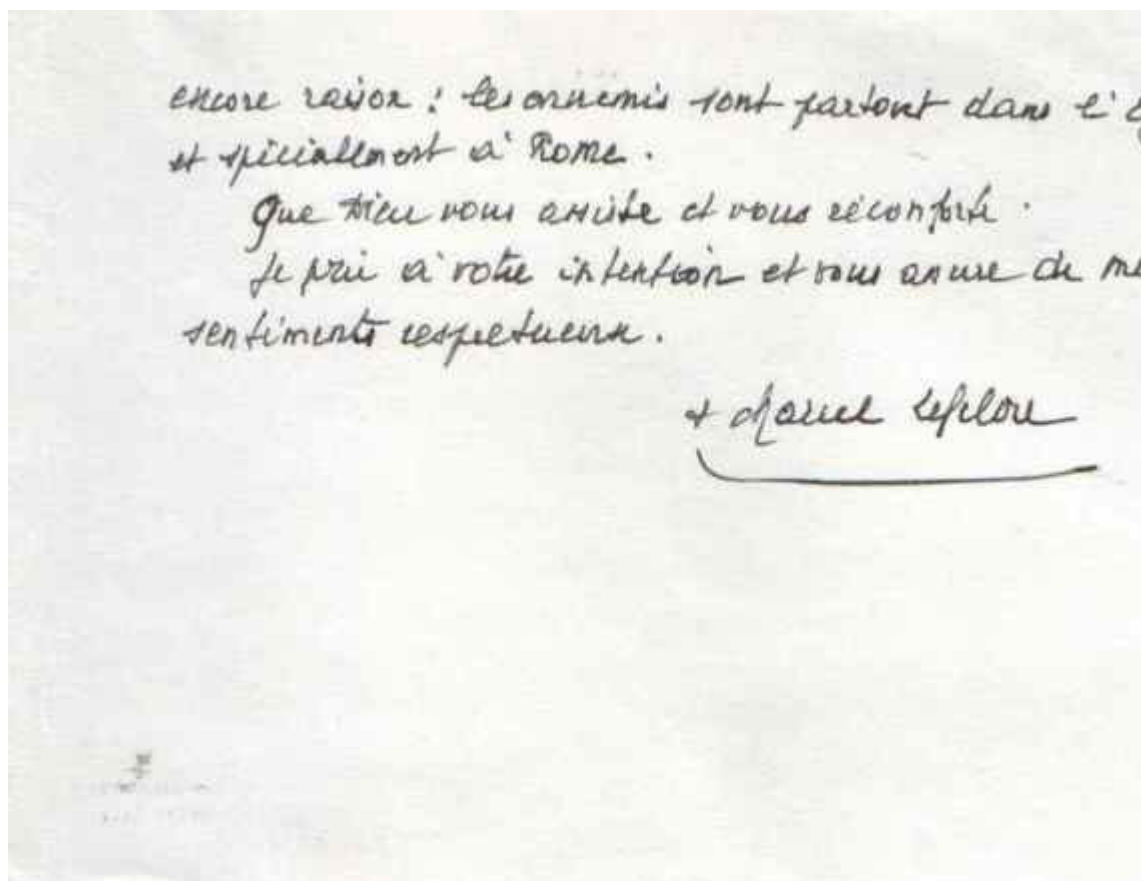 encore raison : les ennemis sont partout dans l'
et spécialement à Rome.
Que Dieu vous assiste et vous réconforte.
Je prie à votre intention et vous assure de me
sentiments respectueux.
+ Marcel Lefebvre